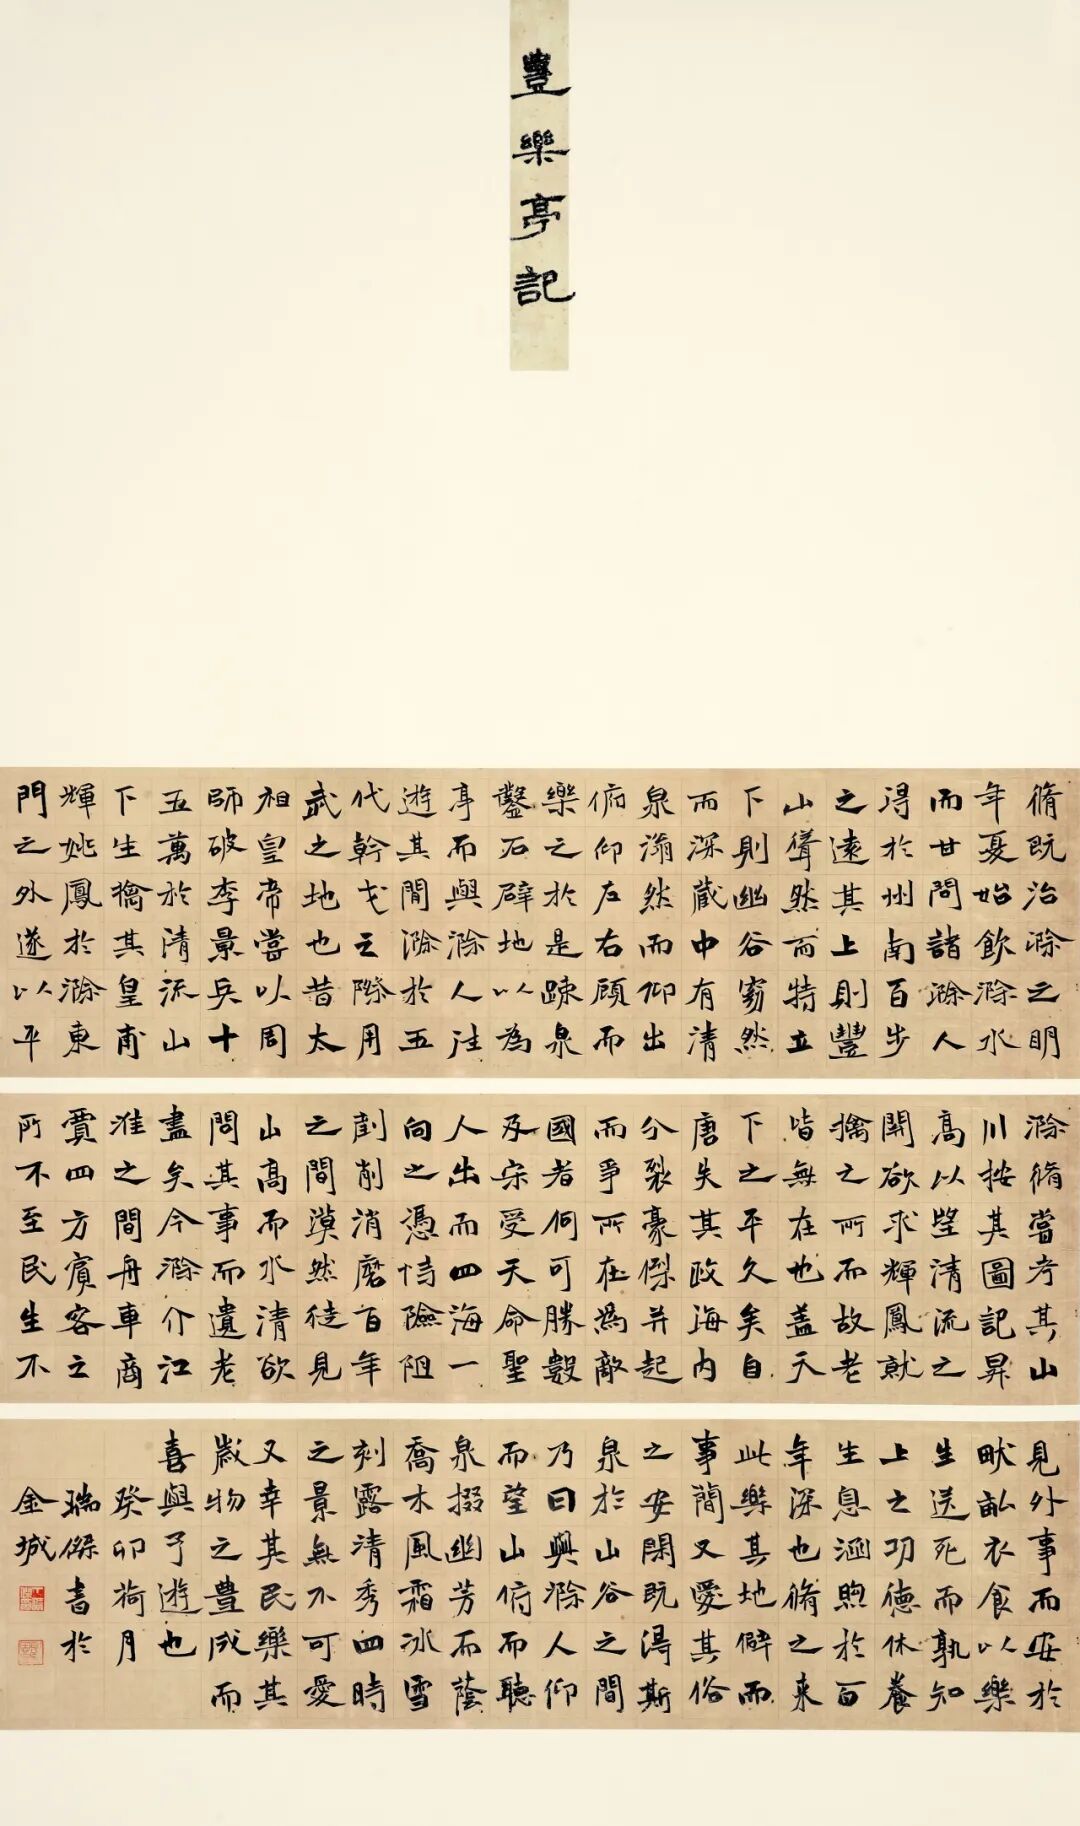 豐樂亭記
脩既治滁之明
年夏始飲滁水
而甘問諸滁人
得於州南百步
之遠其上則豐
山聳然而特立
下則幽谷窈然
而深藏中有清
泉滃然而仰出
俯仰左右顧而
樂之於是疎泉
鑿石辟地以為
亭而與滁人往
遊其間滁於五
代幹戈之際用
武之地也昔太
祖皇帝嘗以周
師破李景兵十
五萬於清流山
下生擒其皇甫
輝姚鳳於滁東
門之外遂以平
滁脩嘗考其山
川按其圖記昇
高以望清流之
開欲求輝鳳就
擒之所而故老
皆無在也蓋天
下之平久矣自
唐失其政海內
分裂豪傑并起
而爭所在為敵
國者何可勝數
及宋受天命聖
人出而四海一
向之憑恃險阻
剷削消磨百年
之間漠然徒見
山高而水清欲
問其事而遺老
盡矣今滁介江
淮之間舟車商
賈四方賓客之
所不至民生不
見外事而安於
畎畝衣食以樂
生送死而孰知
上之功德休養
生息涵煦於百
年深也脩之來
此樂其地僻而
事簡又愛其俗
之安閑既得斯
泉於山谷之間
乃曰與滁人仰
而望山俯而聽
泉掇幽芳而蔭
喬木風霜冰雪
刻露清秀四時
之景無不可愛
又幸其民樂其
歲物之豊成而
喜與予遊也
癸卯荷月
瑞傑書於
金城